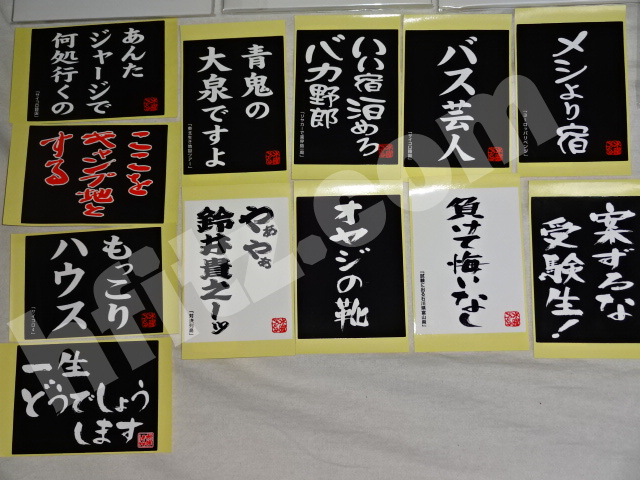 あんた
ジャージで
何処行くの
青鬼の
大泉ですよ
いい宿泊めろ
バカ野郎
バス芸人
メシより宿
ここを
キャンプ地と
する
もっこり
ハウス
やぁやぁ
鈴井貴之ーッ
オヤジの靴
負けて悔いなし
案ずるな
受験生!
一生
どうでしょう
します